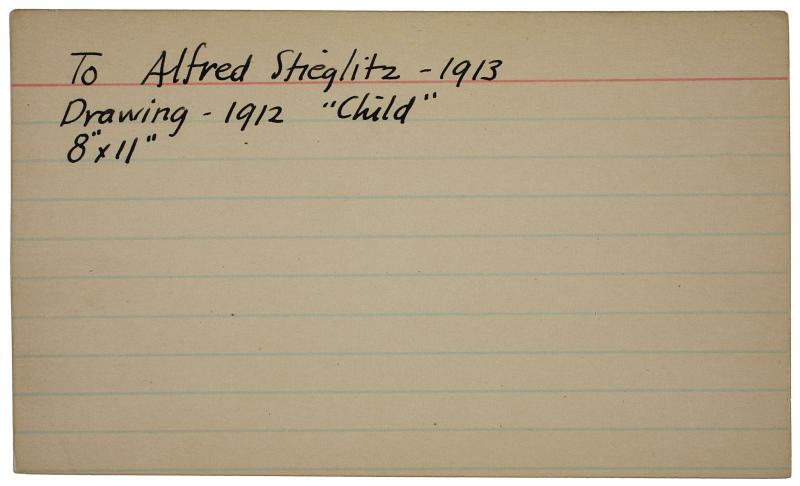 To Alfred Stieglitz - 1913
Drawing - 1912 "Child"
8" x 11"